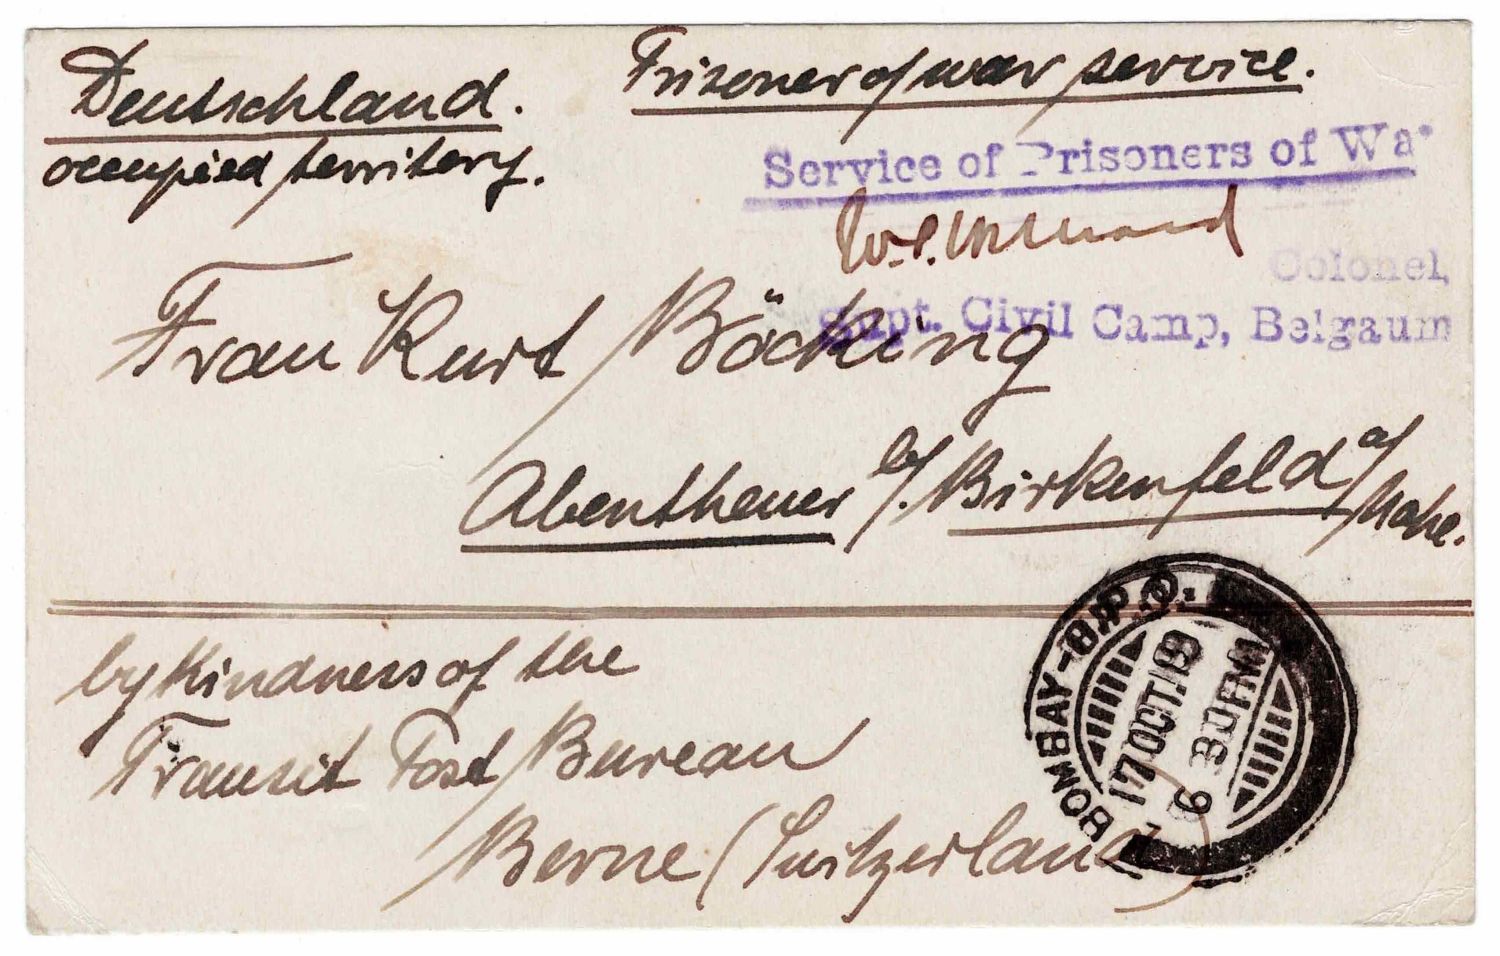 Deutschland.
occupied territory.
Prisoner of war service.
Service of Prisoners of War
Colonel,
Supt. Civil Camp, Belgaum
Frau Kurt Böcking
Abentheuer b/. Birkenfeld a/Nahe.
by Kindness of the
Transit Post Bureau
Berne (Switzerland)
BOMBAY-B.P.O.
17 OCT. 19
6 30 PM